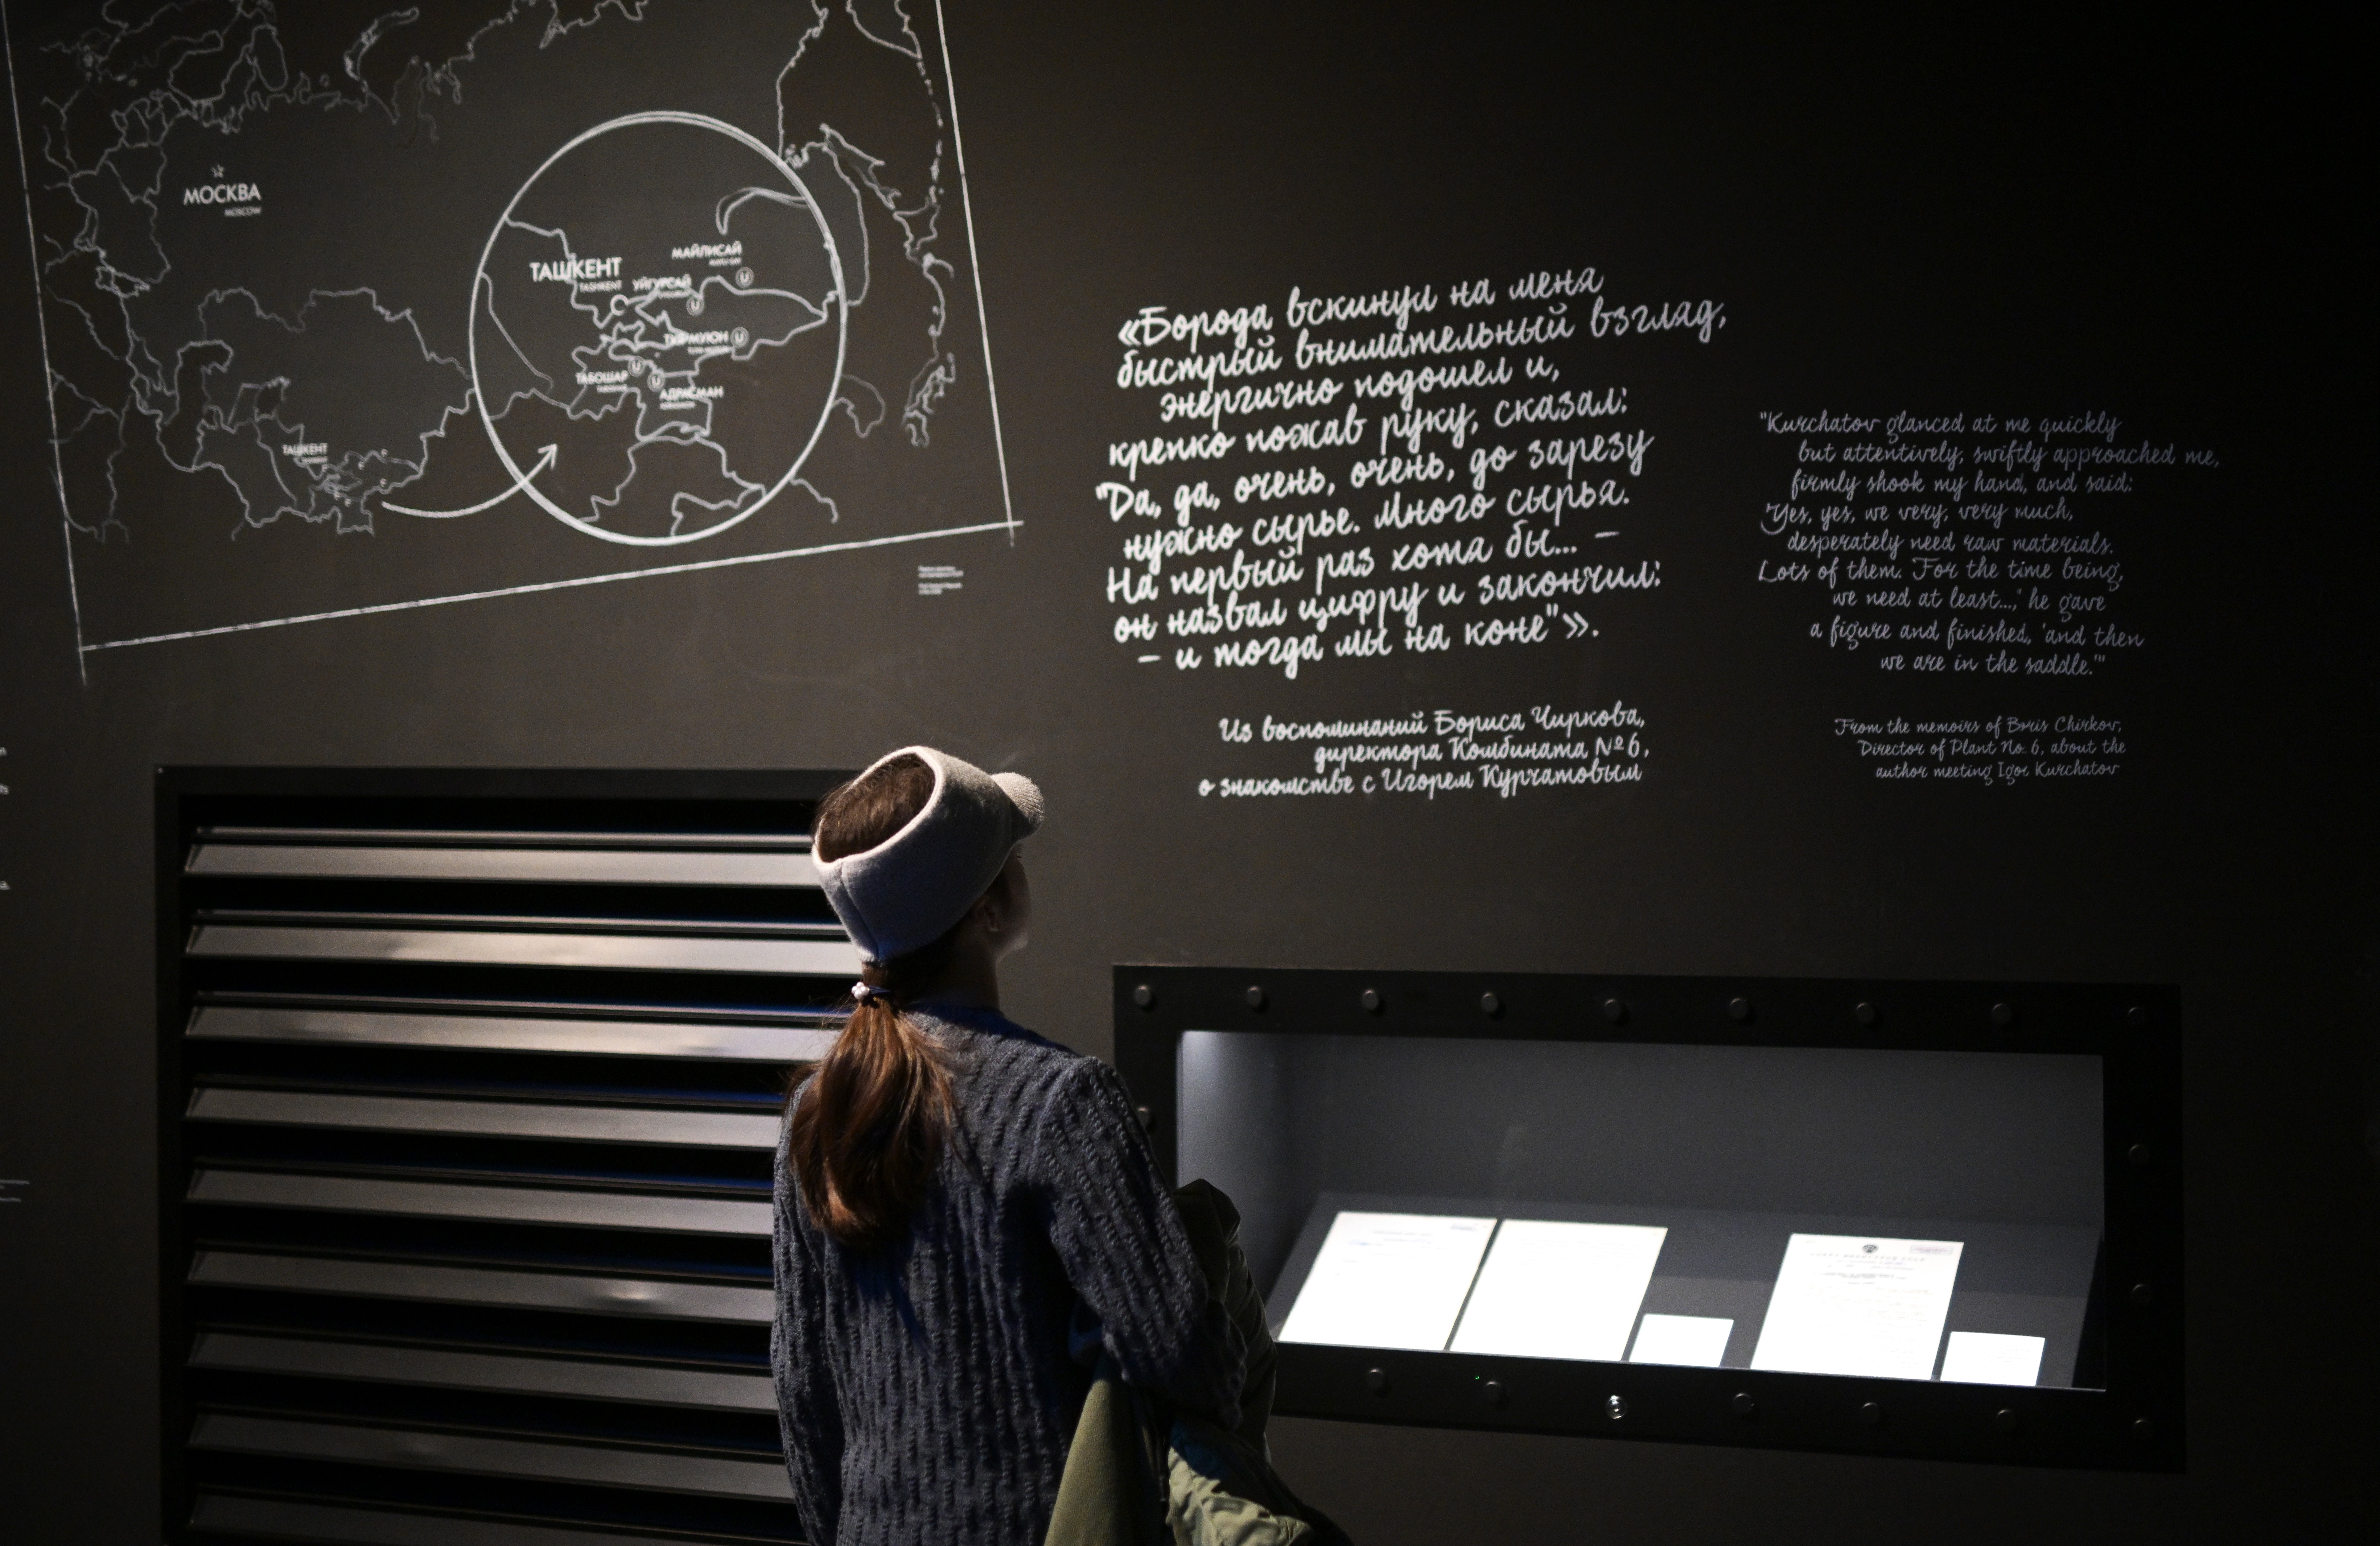 МОСКВА
MOSCOW
ТАШКЕНТ
TASHKENT
МАЙЛИСАЙ
УЙГУРСАЙ
U
U
ТЮЯМУЮН U
U
U
ТАБОШАР
АДРАСМАН
ТАШКЕНТ
«Борода вскинул на меня
быстрый внимательный взгляд,
энергично подошел и,
крепко пожав руку, сказал:
"Да, да, очень, очень, до зарезу
нужно сырье. Много сырья.
На первый раз хотя бы... –
он назвал цифру и закончил:
– и тогда мы на коне"».
Из воспоминаний Бориса Чиркова,
директора Комбината №6,
о знакомстве с Игорем Курчатовым
"Kurchatov glanced at me quickly
but attentively, swiftly approached me,
firmly shook my hand, and said:
'Yes, yes, we very, very much,
desperately need raw materials.
Lots of them. For the time being,
we need at least...,' he gave
a figure and finished, 'and then
we are in the saddle.'"
From the memoirs of Boris Chirkov,
Director of Plant No. 6, about the
author meeting Igor Kurchatov